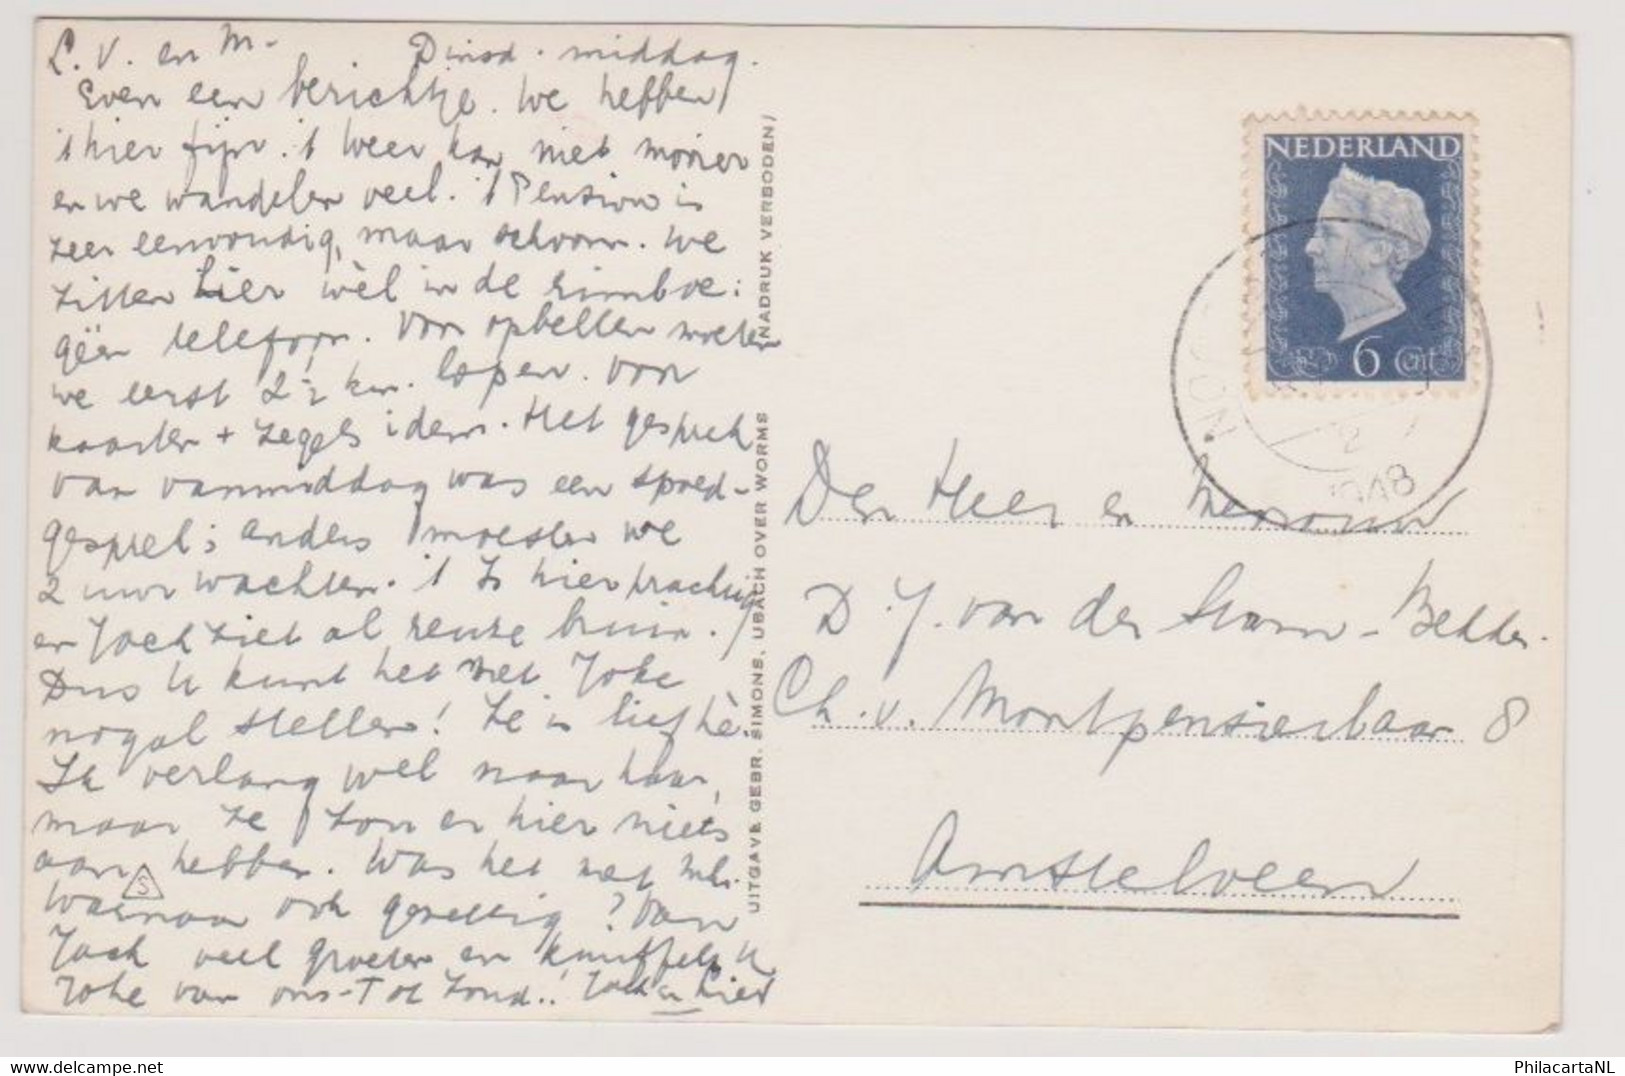 L. V. en M- Dinsd. middag.
Even een berichtje. We hebben
't hier fijn. 't weer kan niet mooier
en we wandelen veel. 't Pension is
zeer eenvoudig, maar schoon. We
zitten hier wèl in de rimboe:
géén telefoon. Voor opbellen moeten
we eerst 2½ km. lopen. Voor
kaarten + zegels idem. Het gesprek
van vanmiddag was een spoed-
gesprek; anders moesten we
2 uur wachten. 't Is hier prachtig
en Jack ziet al reuze bruin.
Dus U kunt het met Joke
nogal stellen! Ze is lief hè.
Ik verlang wel naar haar,
maar ze zou er hier niets
aan hebben. Was het met
ook gezellig? Van
Jack veel groeten en knuffelt U
Joke van ons. Tot Zond..! Jack en
S
UITGAVE GEBR. SIMONS, UBACH OVER WORMS
NADRUK VERBODEN
NEDERLAND
6 cnt
1948
Den Heer en Mevrouw
D. J. van der Stam-Bekker.
Ch. v. Montpensierlaan 8
Amstelveen
PhilacartaNL